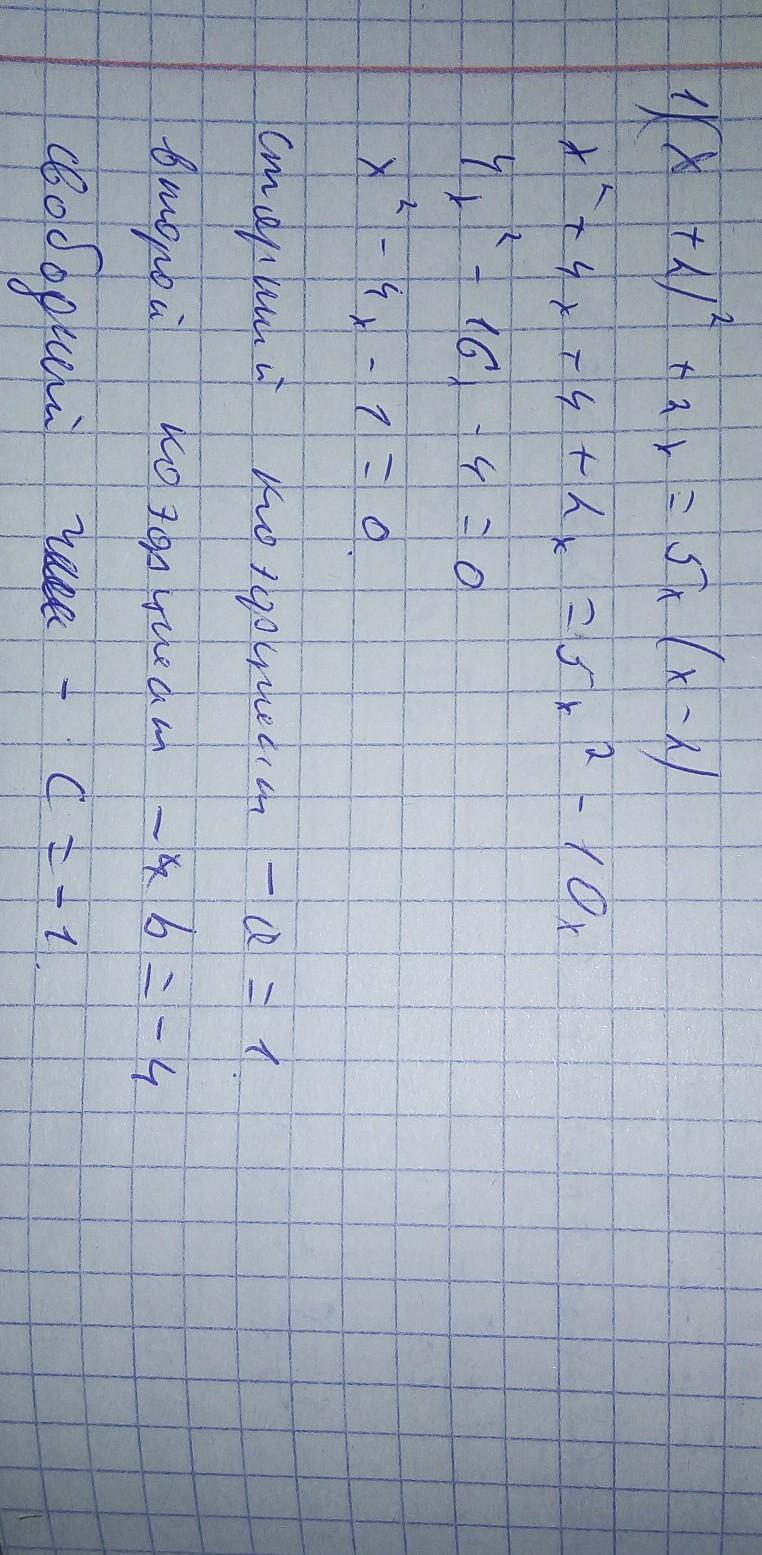 1) (x + 2)² + 2x = 5x (x - 2)
x² + 4x + 4 + 2x = 5x² - 10x
4x² - 16x - 4 = 0
x² - 4x - 1 = 0
старший коэфициент - a = 1
второй коэфициент - b = -4
свободный член - c = -1.